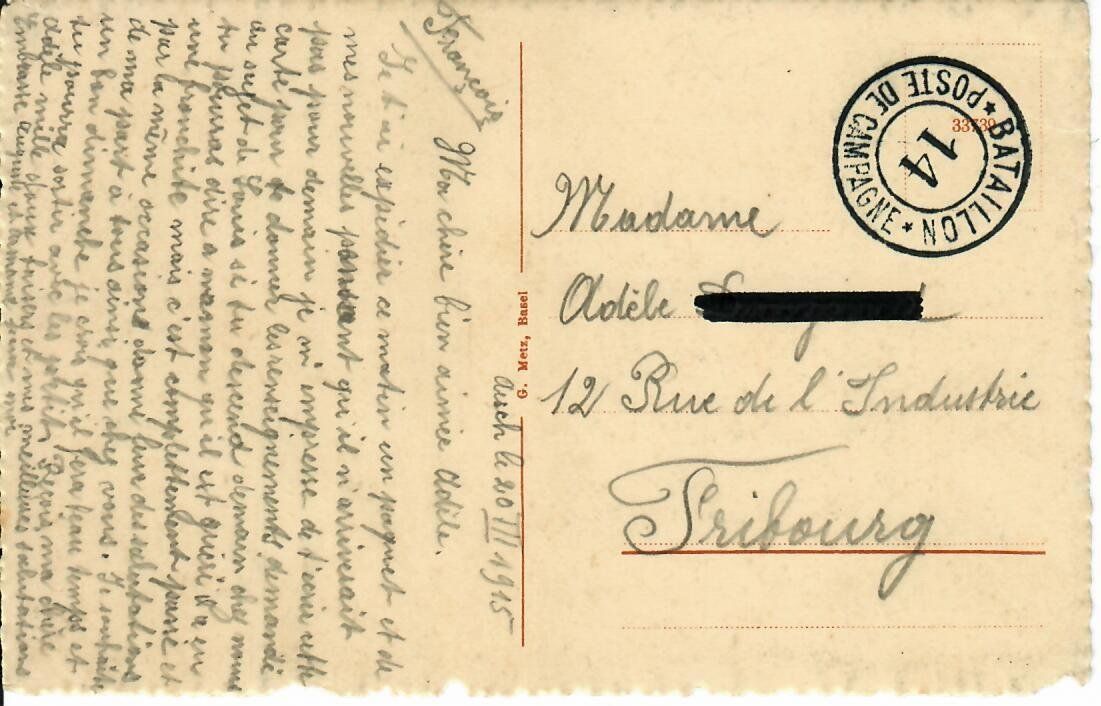 Aesch le 20 III 1915
Ma chère bien aimée Adèle.
Je t'ai expédier ce matin un paquet et de
mes nouvelles pensant qu'il n'arriverait
pas pour demain je m'empresse de t'écrire cette
carte pour te donner les renseignements demandé
au sujet de Louis si tu descend demain chez nous
tu pourras dire a maman qu'il est guéri il a eu
une bronchite mais c'est complettement passé et
par la même occasion donne leur des salutations
de ma part à tous ainsi que chez vous. Je souhaite
un bon dimanche je crois qu'il fera beau temps et
tu pourra sortir avec les petits. Reçois ma chère
Adèle mille doux baisers et mes meilleures salutations
Embrasse
François
G. Metz, Basel
BATAILLON * POSTE DE CAMPAGNE *
14
33739
Madame
Adèle
12 Rue de l'Industrie
Fribourg